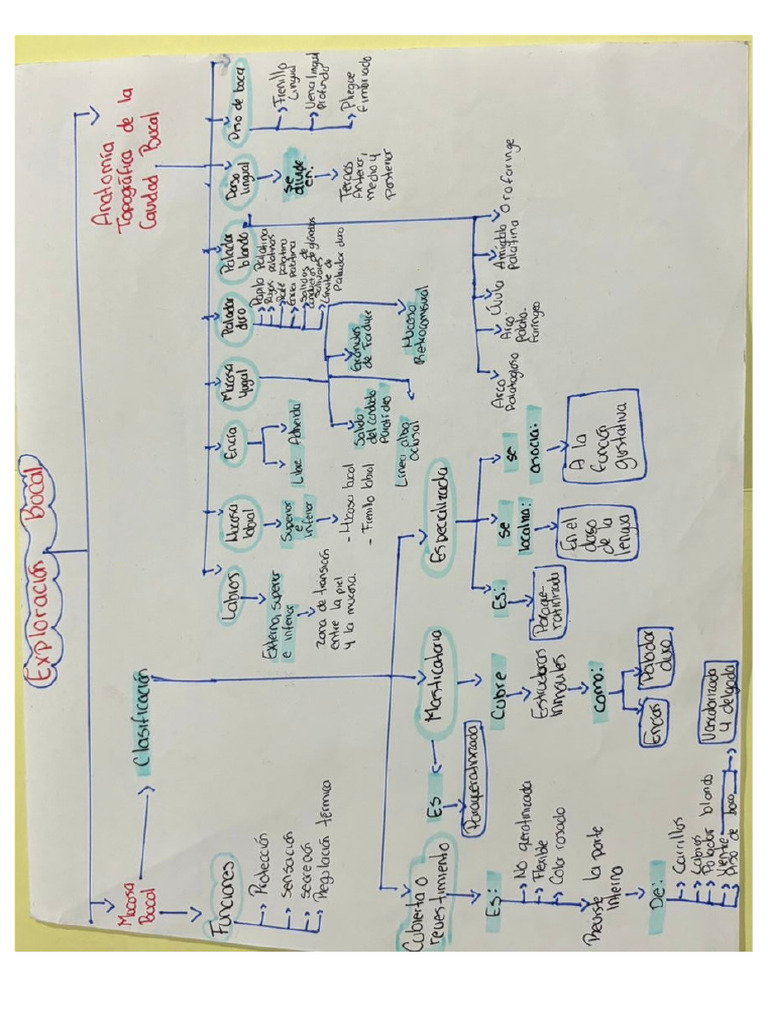 Exploración Bucal
Mucosa
Bucal
Clasificación
Funciones
Protección
sensación
secreción
Regulación térmica
Cubierta o
revestimiento
Es:
No qeratinizada
Flexible
Color rosado
Reviste la parte
interna
De:
Carrillos
Labios
Paladar blando
Vientre
Piso de boca
Vascularizada
y delgada
Masticatoria
Es
Paraqueratinizada
Cubre
Estructuras
inmoviles
como:
Encías
Paladar
duro
Especializada
Es:
Paraque-
ratinizada
se
localiza:
En el
dorso
de la
lengua
se
asocia:
A la
función
gustativa
Anatomía
Topográfica de la
Cavidad Bucal
Labios
Externa, superior
e inferior
zona de transición
entre la piel
y la mucosa.
Mucosa
labial
Superior
e
inferior
- Mucosa labial
- Frenillo labial
Encía
Libre
Adherida
Mucosa
Yugal
Salida
del conducto
Parotideo
Línea alba
oclusal
Gránulos
de Fordyce
Mucosa
Retrocomisural
Paladar
duro
Papila Palatina
Rugas palatinas
Rafe palatino
Encía palatina
Salidas de
conductos de glándulas
salivales
Límite de
Paladar duro
Paladar
blando
Arco
Palatogloso
Arco
Palato-
faringeo
Úvula
Amígdala
palatina
Orofaringe
Dorso
lingual
se
divide
en:
Tercios
Anterior,
medio y
posterior
Piso de boca
Frenillo
Lingual
Vena lingual
profunda
Pliegue
fimbriado